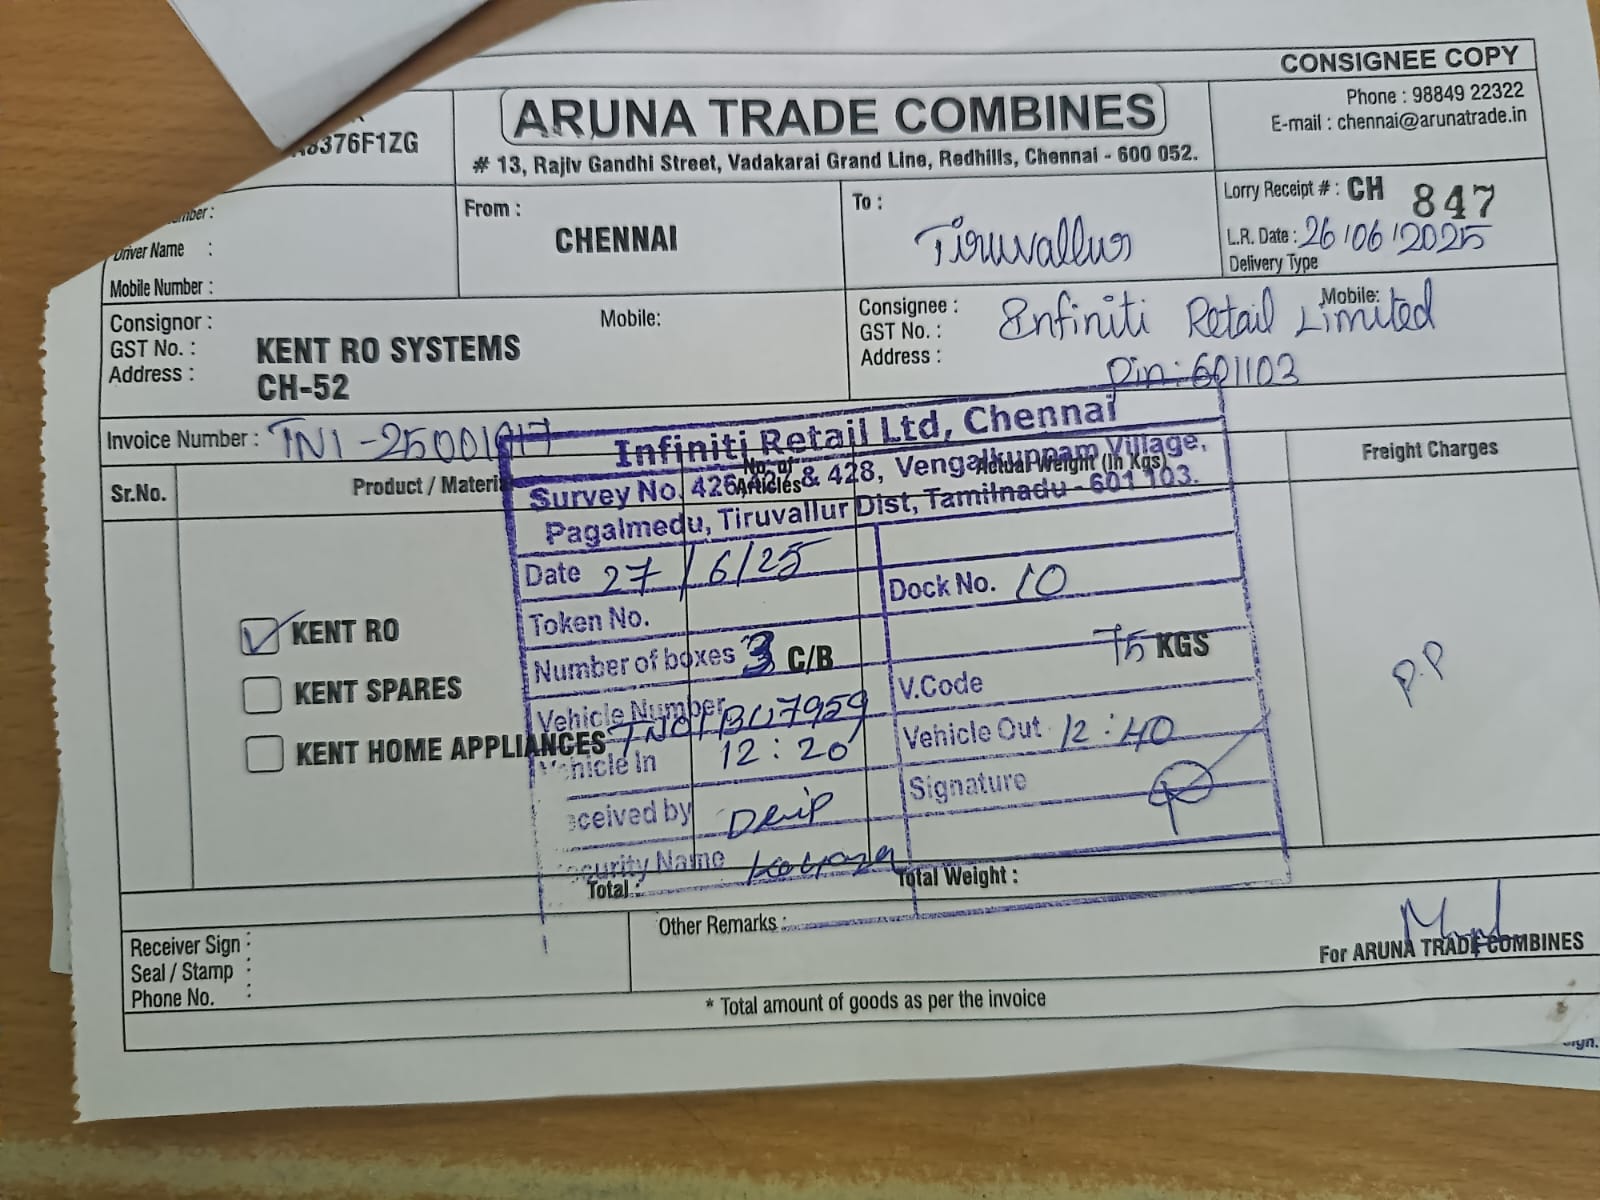 CONSIGNEE COPY
376F1ZG
ARUNA TRADE COMBINES
# 13, Rajiv Gandhi Street, Vadakarai Grand Line, Redhills, Chennai - 600 052.
Phone : 98849 22322
E-mail : chennai@arunatrade.in
Driver Name :
Mobile Number :
From :
CHENNAI
To :
Tiruvallur
Lorry Receipt # : CH 847
L.R. Date : 26/06/2025
Delivery Type
Consignor :
GST No. :
Address :
Mobile:
KENT RO SYSTEMS
CH-52
Consignee :
GST No. :
Address :
Mobile:
Infiniti Retail Limited
Pin: 601103
Invoice Number : TN1-25001
Sr.No.
Product /
No. of Articles
Actual Weight (In Kgs)
Freight Charges
Infiniti Retail Ltd, Chennai
Survey No. & 428, Vengalkuppam Village,
Pagalmedu, Tiruvallur Dist, Tamilnadu - 601 103.
Date 27/6/25
Dock No. 10
Token No.
KENT RO
Number of boxes 3 C/B
75 KGS
KENT SPARES
V.Code
P.P
Vehicle Number
KENT HOME APPLIANCES
Vehicle In 12:20
Vehicle Out 12:40
Received by
Signature
Security Name
Total :
Total Weight :
Receiver Sign :
Seal / Stamp :
Phone No. :
Other Remarks :
For ARUNA TRADE COMBINES
* Total amount of goods as per the invoice